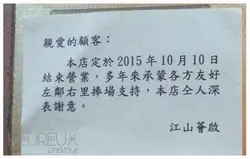 親愛的顧客：
本店定於2015年10月10日
結束營業，多年來承蒙各方友好
左鄰右里捧場支持，本店仝人深
表謝意。
江山薈啟
EUREUX
LIFESTYLE